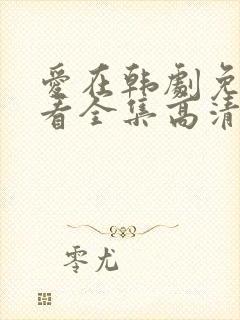 愛在韩劇免
看全集高清
零尤